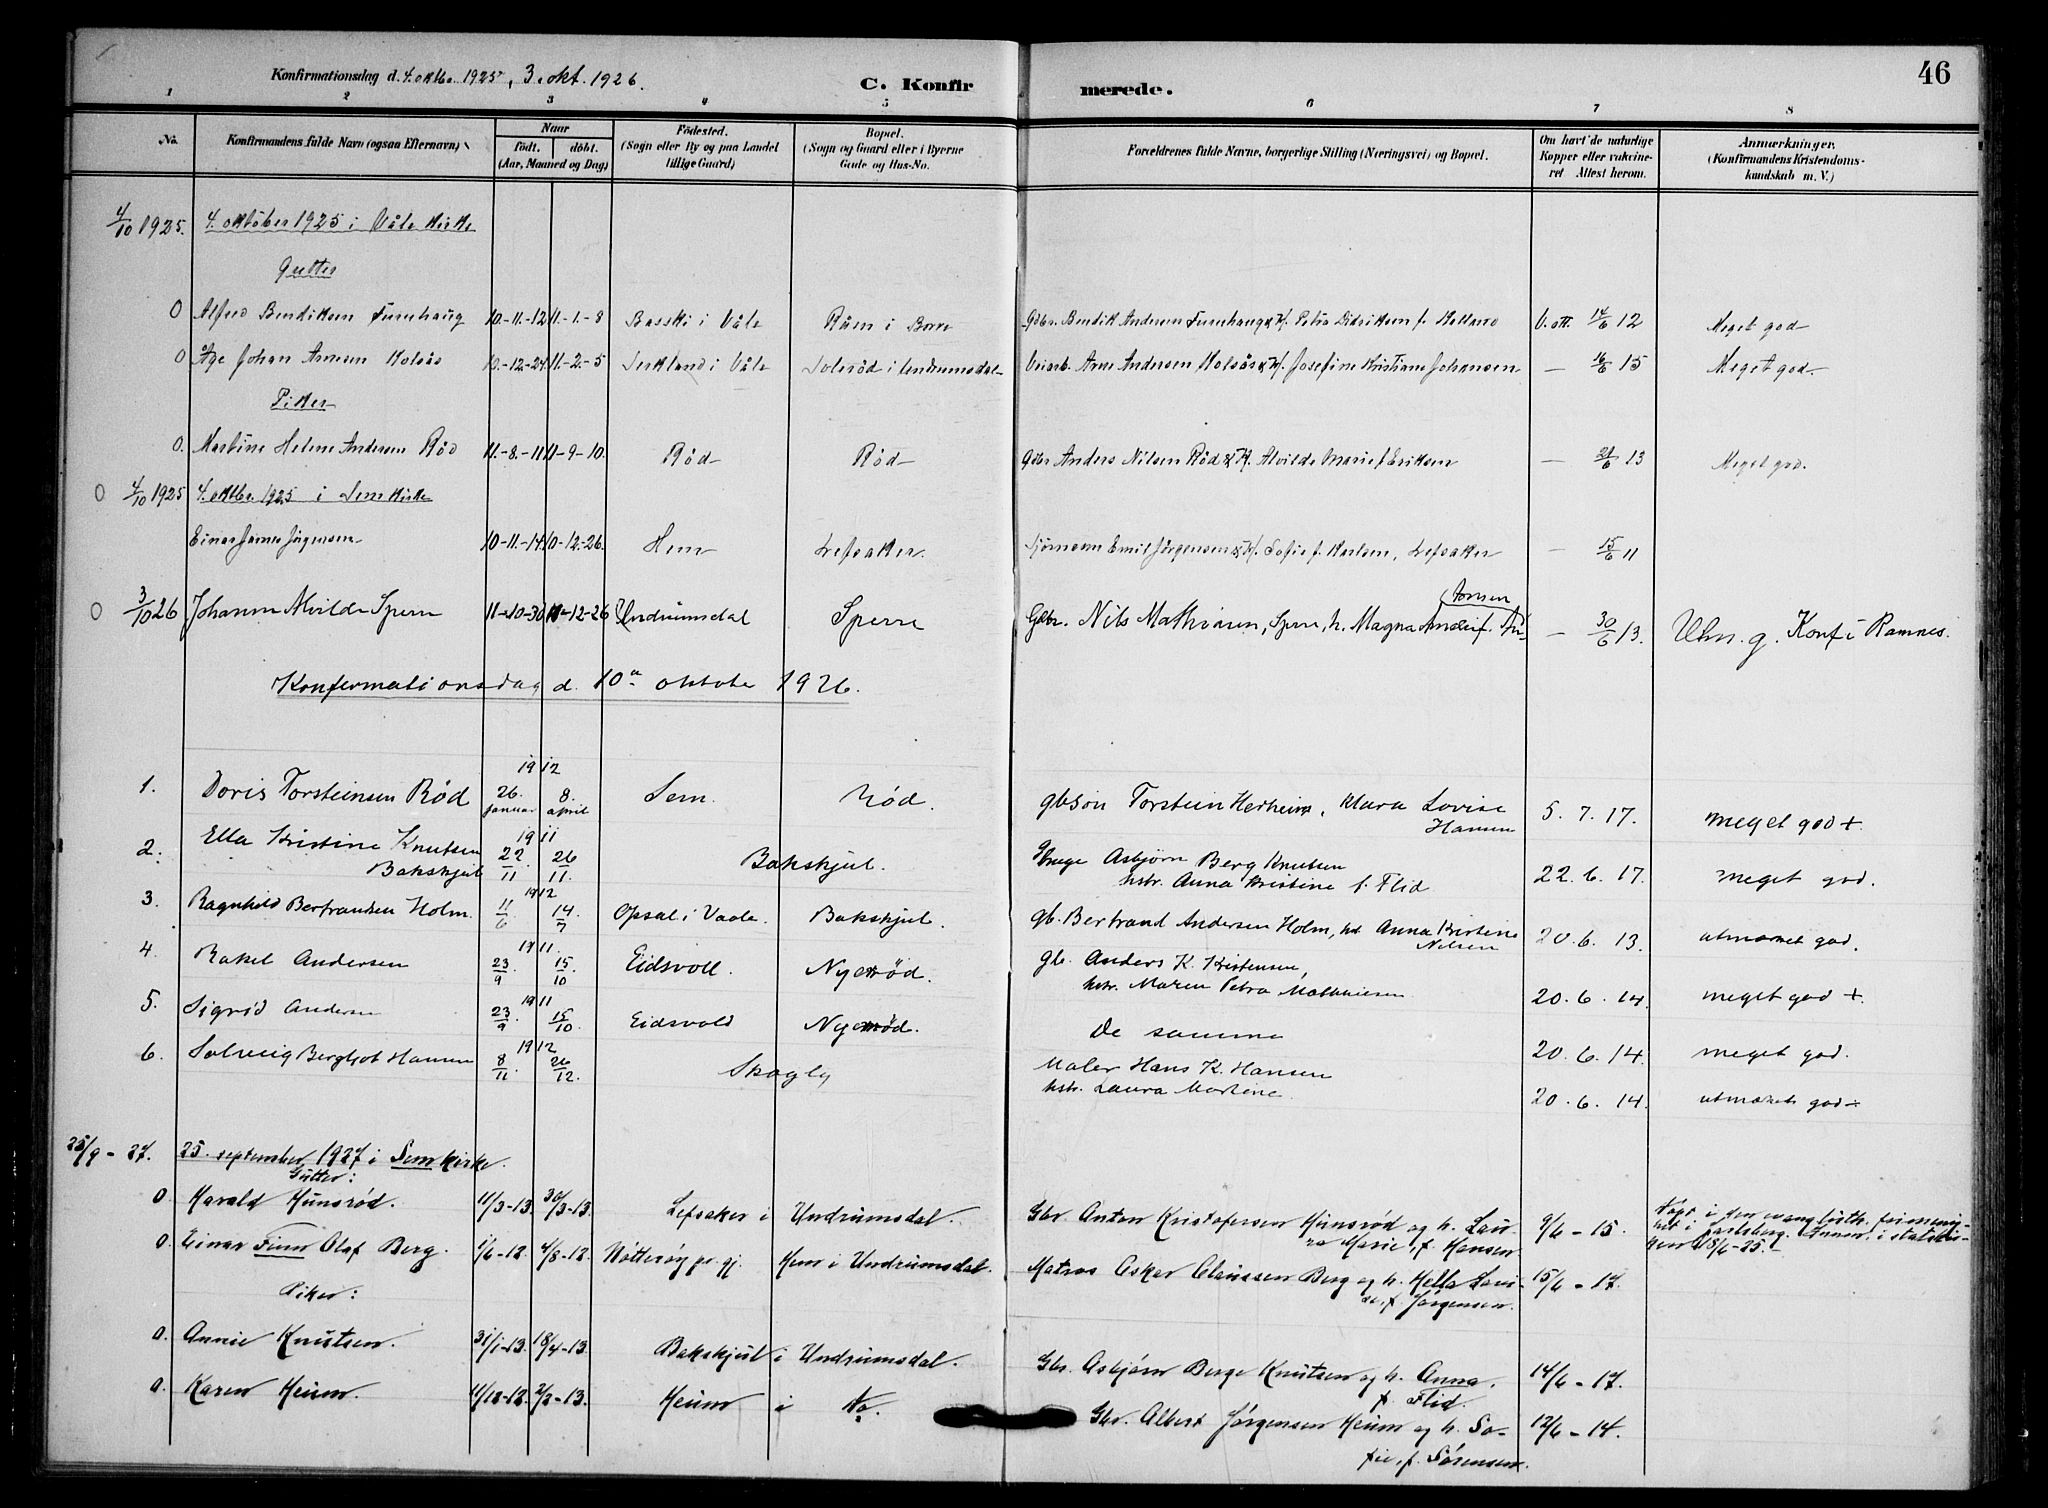 Konfirmationsdag d. 4. oktbr. 1925, 3. okt. 1926.
C. Konfirmerede.
46
1 2 3 4 5 6 7 8
No.
Konfirmandens fulde Navn (ogsaa Efternavn)
Naar
født. døbt.
(Aar, Maaned og Dag)
Fødested.
(Sogn eller By og paa Landet
tillige Gaard)
Bopæl.
(Sogn og Gaard eller i Byerne
Gade og Hus-No.
Forældrenes fulde Navne, borgerlige Stilling (Næringsvei) og Bopæl.
Om havt de naturlige
Kopper eller vakcine-
ret Attest herom.
Anmærkninger.
(Konfirmandens Kristendoms-
kundskab m. V.)
4/10 1925. 4. oktober 1925 i Våle kirke
Gutter
0 Alfred Bendiksen Furuhaug 10.-11.-12 11.-1.-8 Basski i Våle Råen i Borre Gdbr. Bendik Andersen Furuhaug & H. Petra Didriksen f. Holland V. att. 14/6 12 Meget god
0 Åge Johan Arnesen Holsås 10.-12.-24 11.-2.-5 i Våle Solerød i Undrumsdal Veiarb. Arne Andersen Holsås & H. Josefine Kristiane Johansen — 16/6 15 Meget god.
Piker
0. Martine Helene Andersen Rød 11.-8.-11 11-9-10. Rød Rød Gdbr Anders Nilsen Rød & H. Alvilde Marie f. Eriksen — 21/6 13 Meget god.
0 4/10 1925 4. oktbr. 1925 i Sem kirke
Einar James Jørgensen 10-11.-14. 10-12.-26. Hem Lefsaker. Sjømann Emil Jørgensen & H. Sofie f. Karlsen, Lefsaker — 15/6 11
0 3/10 26 Johanne Alvilde Sperre 11-10-30 11-12-26 Undrumsdal Sperre Gdbr. Nils Mathisen, Sperre, h. Magna f. — 30/6 13. Ukn. g. Konf i Ramnes.
Konfermationsdag d. 10de oktober 1926.
1. Doris Torsteinsen Rød 1912 26. januar 8. april Sem. Rød. gbsøn Torstein Herheim, Mara Lovise
Hansen 5. 7. 17. meget god +.
2. Ella Kristine Knutsen
Bakskjul 1911 22/11 26/11. Bakskjul. Asbjørn Berg Knutsen
hstr. Anna Kristine f. Flid 22. 6. 17. meget god.
3. Ragnhild Bertrandsen Holm. 1912 11/6 14/7 Opsal i Vaale. Bakskjul. gb. Bertrand Andersen Holm, hst Anna Kristine
Nilsen 20. 6. 13. utmerket god.
4. Rakel Andersen 1911. 23/9 15/10 Eidsvoll. Nyerød. gb. Anders K. Kristensen,
hstr. Maren Petra Mathisen 20. 6. 14. meget god +.
5. Sigrid Andersen 1911 23/9 15/10 Eidsvold Nyerød. De samme 20. 6. 14. meget god.
6. Solveig Bergljot Hansen 1912 8/11 26/12. Skogly Maler Hans K. Hansen
hstr. Laura Martine. 20. 6. 14. utmerket god ÷
25/9 - 27. 25. september 1927 i Sem kirke.
Gutter:
0. Harald Hunsrød. 11/3-13. 30/3-13. Lefsaker i Undrumsdal. Gbr. Anton Kristofersen Hunsrød og h. Lau-
ra Marie, f. Hansen. 9/6 - 15. Døpt i den evang. luth. frimenig-
het i Jarlsberg. i statskir-
ken 18/6-25.
0. Einar Finn Olaf Berg. 1/6-12. 4/8-12. Nøtterøy pr. gj. Hem i Undrumsdal. Matros Oskar Claussen Berg og h. Hella Lovi-
se, f. Jørgensen. 15/6 - 17.
Piker:
0. Annie Knutsen. 31/1-13. 18/4-13. Bakskjul i Undrumsdal. Gbr. Asbjørn Berge Knutsen og h. Anna,
f. Flid. 14/6 - 17.
0. Karen Heum. 11/12-12. 2/2-13. Heum i No. Gbr. Albert Jørgensen Heum og h. So-
fie, f. Sørensen. 12/6 - 14.